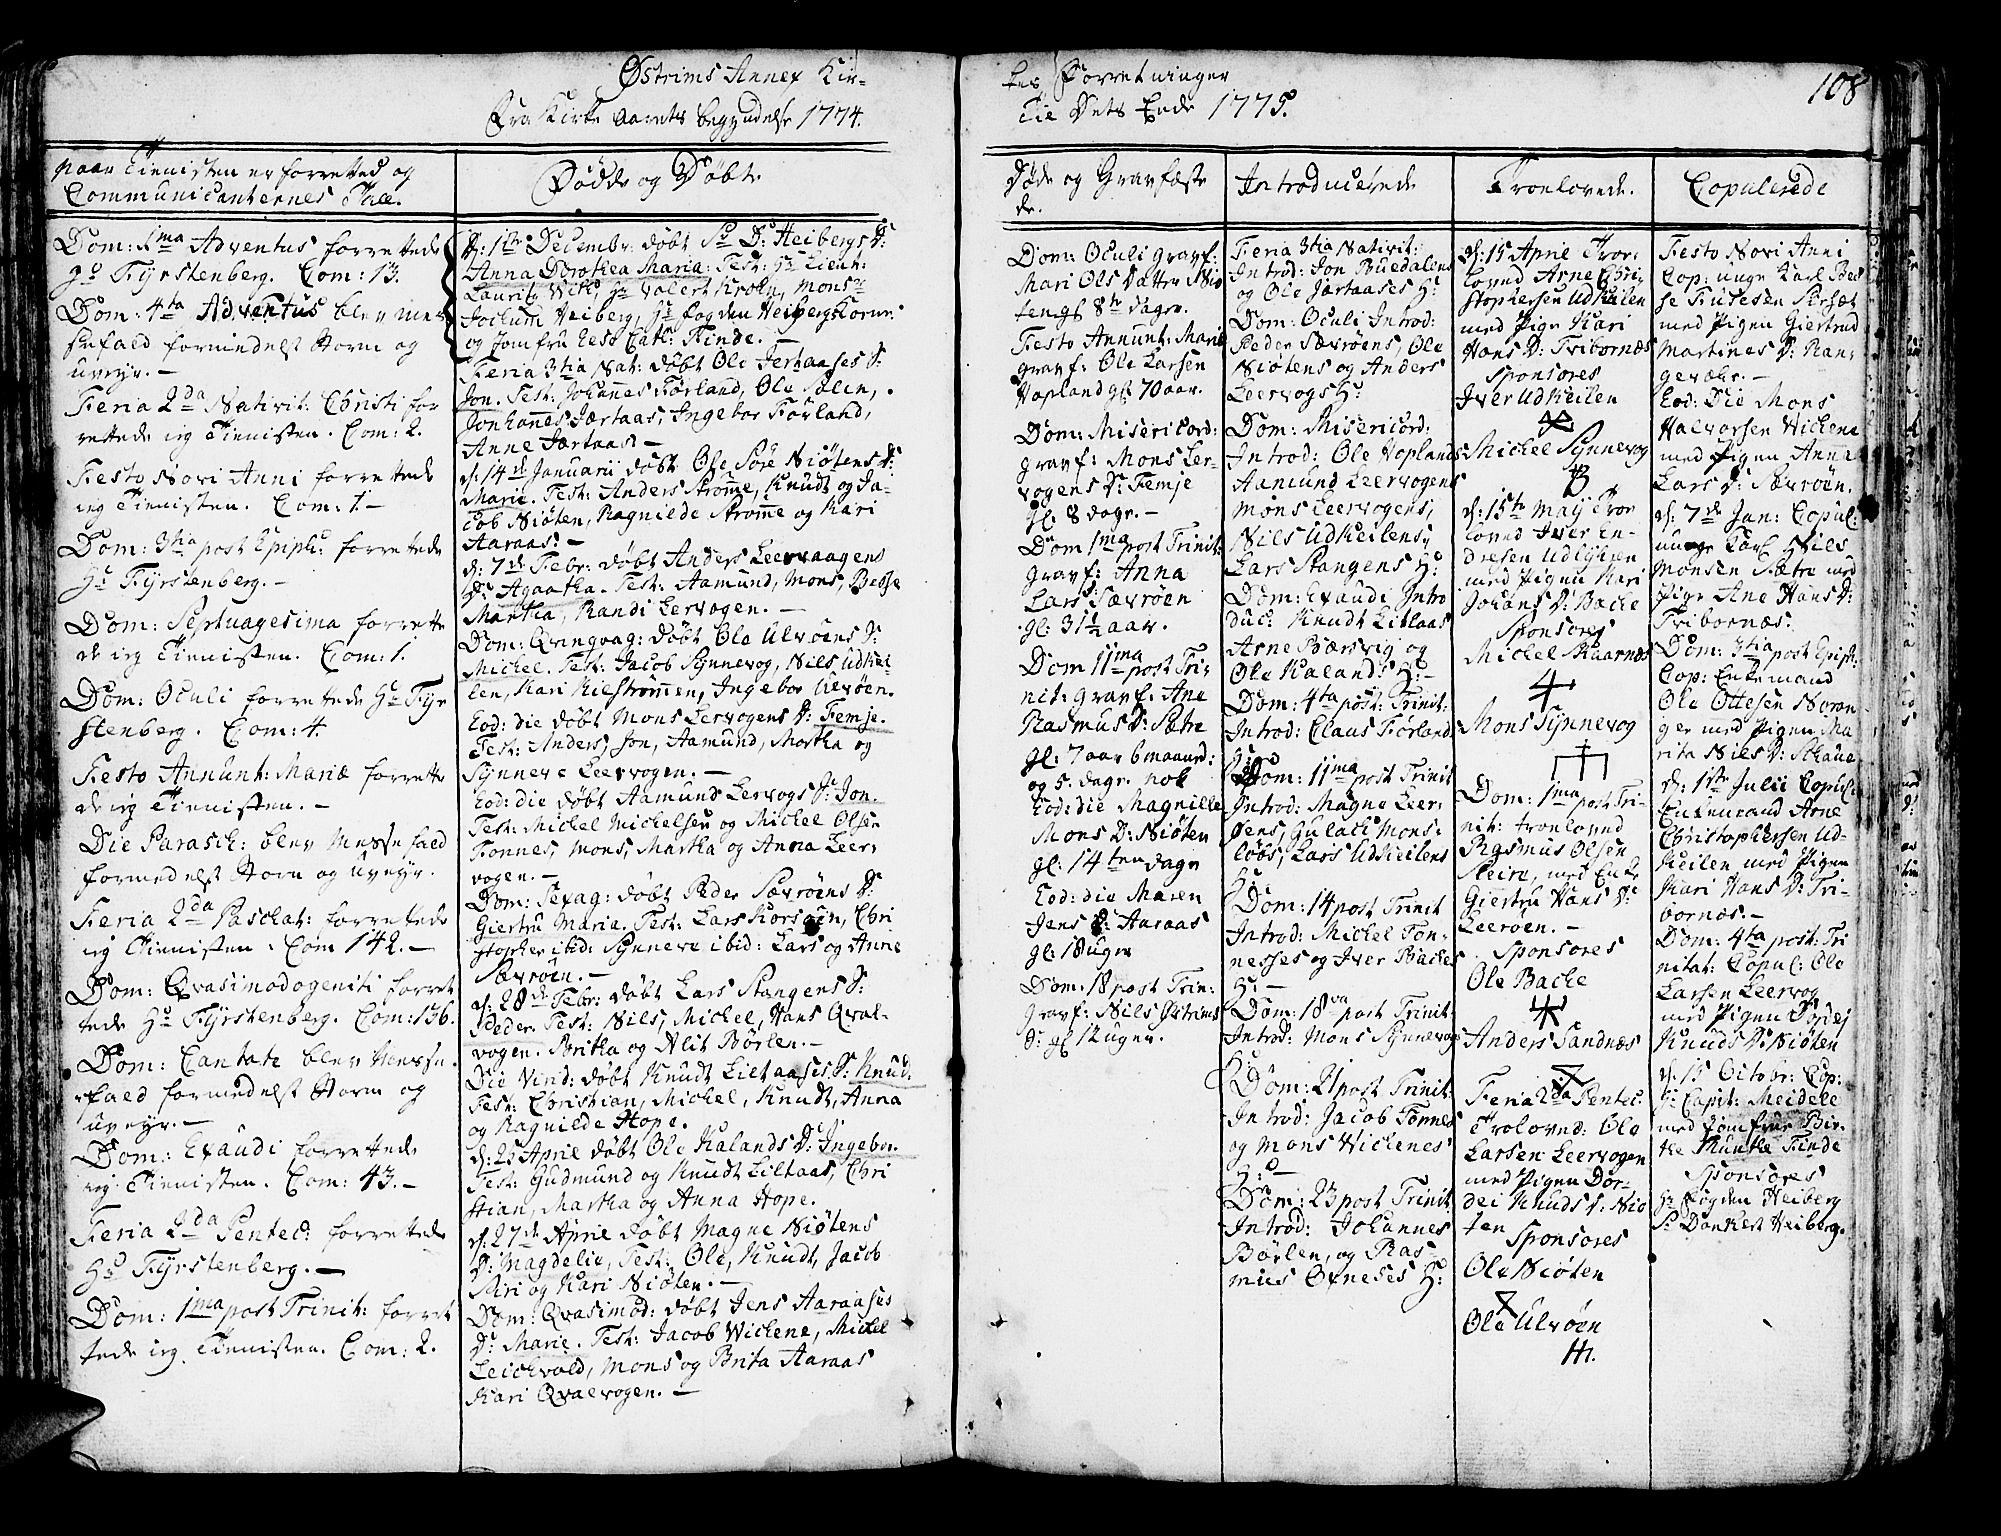 Østrims Annex Kir-
Fra Kirke Aarets begyndelse 1774.
naar Tienisten er forretted og
Communicanternes Tall.
Dom: 1ma Adventus forrettede
Hr Fyrstenberg. Com: 13.
Dom: 4ta Adventus blev mes
sefald formedelst Storm og
uveyr. -
Feria 2da Nativit: Christi for
rettede ieg Tienisten. Com: 2.
Festo Novi Anni forrettede
ieg Tienisten. Com: 1. -
Dom: 3tia post Epiph: forrettede
Hr Fyrstenberg. -
Dom: Septuagesima forrette
de ieg Tienisten. Com: 1.
Dom: Oculi forrettede Hr Fyr
stenberg. Com: 4.
Festo Annunt: Mariæ forrette
de ieg Tienisten. -
Die Parasch: blev Messefald
formedelst Storm og Uveyr.
Feria 2da Paschat: forrettede
ieg Tienisten. Com 142. -
Dom: Qvasimodogeniti forret
tede Hr Fyrstenberg. Com: 136.
Dom: Cantate blev Messe-
fald formedelst Storm og
uveyr. -
Dom: Exaudi forrettede
ieg Tienisten. Com: 43. -
Feria 2da Pentec: forrettede
Hr Fyrstenberg. -
Dom: 1ma post Trinit: forret
tede ieg Tienisten. Com: 2.
Fødde og Døbte
d: 1ste Decembr: døbt Sr D: Heibergs D:
Anna Dorothea Maria: Test: Hr Lieut:
Lauritz Wiik, Hr Valert Krohn, Monsr
Jochum Heiberg, Hr fogden Heibergs
og Jomfru Cath: Finde. -
Feria 3tia Nat: døbt Ole Jertaases S:
Jon. Test: Johannes Førland, Ole
Johannes Jærtaas, Ingebor Førland,
Anne Jærtaas -
d: 14de Januarii døbt Ole Søre Niøtens D:
Marie. Test: Anders Strømme, Knudt og Ja-
cob Niøten, Ragnilde Strømme og Kari
Aaraas. -
d: 7de Febr: døbt Anders Leervaagens
D: Agaatha. Test: Aamund, Mons, Besse
Martha, Randi Lervogen. -
Dom: Qvinqvag: døbt Ole Ulvøens S:
Michel. Test: Jacob Synnevog, Nils Udkei-
len, Kari Kilstrømmen, Ingebor Ulvøen.
Eod: die døbt Mons Lervogens D: Femje.
Test: Anders, Jon, Aamund, Martha og
Synneve Leervogen. -
Eod: die døbt Aamund Lervogs S: Jon.
Test: Michel Michelsen og Michel Olsen
Fonnes, Mons, Martha og Anna Leer-
vogen. -
Dom: Sexag: døbt Peder Sævrøens D:
Giertru Maria. Test: Lars Korsøin, Chri
stopher ibid: Synneve ibid: Lars og Anne
Sævrøen. -
d: 28de Febr: døbt Lars Stangens S:
Peder. Test: Nils, Michel, Hans Qval-
vogen. Britha og Alit Børlen. -
Die Vird: døbt Knudt Liltaases S: Knud.
Test: Christian, Michel, Knudt, Anna
og Ragnilde Hope.
d: 25 April døbt Ole Kalands D: Ingebor.
Test: Gudmund og Knudt Liltaas, Chri
stian, Martha og Anna Hope.
d: 27de April døbt Magne Niøtens
D: Magdeli, Test: Ole, Knudt, Jacob
Siri og Kari Niøten. -
Dom: Qvasimod: døbt Jens Aaraases
D: Marie. Test: Jacob Wichene, Michel
Leichvold, Mons og Brita Aaraas
Kari Qvalvogen. -
kes Forretninger
Til Dets Ende 1775.
108
Døde og Gravfæste
de.
Dom: Oculi gravf:
Mari Ols Datter Niø
ten gl 8te dage.
Festo Annunt: Mariæ
gravf: Ole Larsen
Hopland gl 70 aar.
Dom: Misericord:
gravf: Mons Ler-
vogens D: Femje
gl: 8 dage. -
Dom 1ma post Trinit:
gravf: Anna
Lars Sævrøen
gl: 31½ aar.
Dom 11ma post Tri-
nit: gravf: Ane
Rasmus D: Sætre
gl: 7 aar 6 maaned:
og 5. dage. nok
Eod: die Magnille
Mons D: Niøten
gl: 14ten dage
Eod: die Maren
Jens D: Aaraas
gl: 18 uger
Dom: 18 post Trin:
gravf: Nils Østrims
D: gl 12 uger.
Introducerede
Feria 3tia Nativit:
Introd: Jon Buedalens
og Ole Jærtaases H:
Dom: Oculi Introd:
Peder Sævrøens, Ole
Niøtens og Anders
Leervogs H:
Dom: Misericord:
Introd: Ole Hoplands
Aamund Leervogens
Mons Leervogens,
Nils Udkeilens,
Lars Stangens H:
Dom: Exaudi Intro
duc: Knudt Litlaas
Arne Bærsvig og
Ole Kaland: H: -
Dom: 4ta post: Trinit:
Introd: Claus Førland
H:
Dom: 11ma post Trinit
Introd: Magne Leer-
øens, Gulach Mons-
løbs, Lars Udkeilens
H:
Dom: 14 post Trinit
Introd: Michel Fon-
nesses og Iver Baches
H: -
Dom: 18va post Trinit:
Introd: Mons Synnevogs
H:
Dom: 21 post Trinit:
Introd: Jacob Fonnes
og Mons Wichenes
H: -
Dom: 23 post Trinit
Introd: Johannes
Børlen, og Ras-
mus Oxneses H:
Troelovede.
d: 15 April Troe-
loved Arne Chri-
stophersen Udkeilen
med Pige Kari
Hans D: Tribornæs
Sponsores
Iver Udkeilen
Michel Synnevog
d: 15te Maij Troe
loved Iver En-
dresen
med Pigen Kari
Johans D: Bache
Sponsores
Michel Skaarnæs
Mons Synnevog
Dom: 1ma post Tri-
nit: troeloved
Rasmus Olsen
Steire, med Enke
Giertru Hans D:
Leerøen. -
Sponsores
Ole Bache
Anders Sandnæs
Feria 2da Pentec:
Troloved: Ole
Larsen Leervogen
med Pigen Dor-
dei Knuds D: Niø
ten Sponsores
Ole Niøten
Ole Ulvøen
Copulerede
Festo Novi Anni
Cop: unge Karl Bes
se
med Pigen Giertrud
Martines D: Ran-
Eod: Die Mons
Halvorsen Wichene
med Pigen Anna
Lars D: Sævrøen.
d: 7de Jan: Copul:
unge Karl Nils
Monsen Sætre med
Pige Ane Hans D:
Tribornæs.
Dom: 3tia post Epiph:
Cop: Enkemand
Ole Ottesen Noron-
ger med Pigen Ma
rita Nils D:
d: 1ste Julii Copul:
Enkemand Arne
Christophersen Ud-
keilen med Pigen
Kari Hans D: Tri-
bornæs. -
Dom: 4ta post: Tri
nitat: Copul: Ole
Larsen Leervog
med Pigen Dordej
Knuds D: Niøten
d: 15 Octobr: Cop:
Hr Capit: Meidell
med Jomfrue Bir-
the Munthe Finde
Sponsores
Hr Fogden Heiberg
Sr Danckert Heiberg.